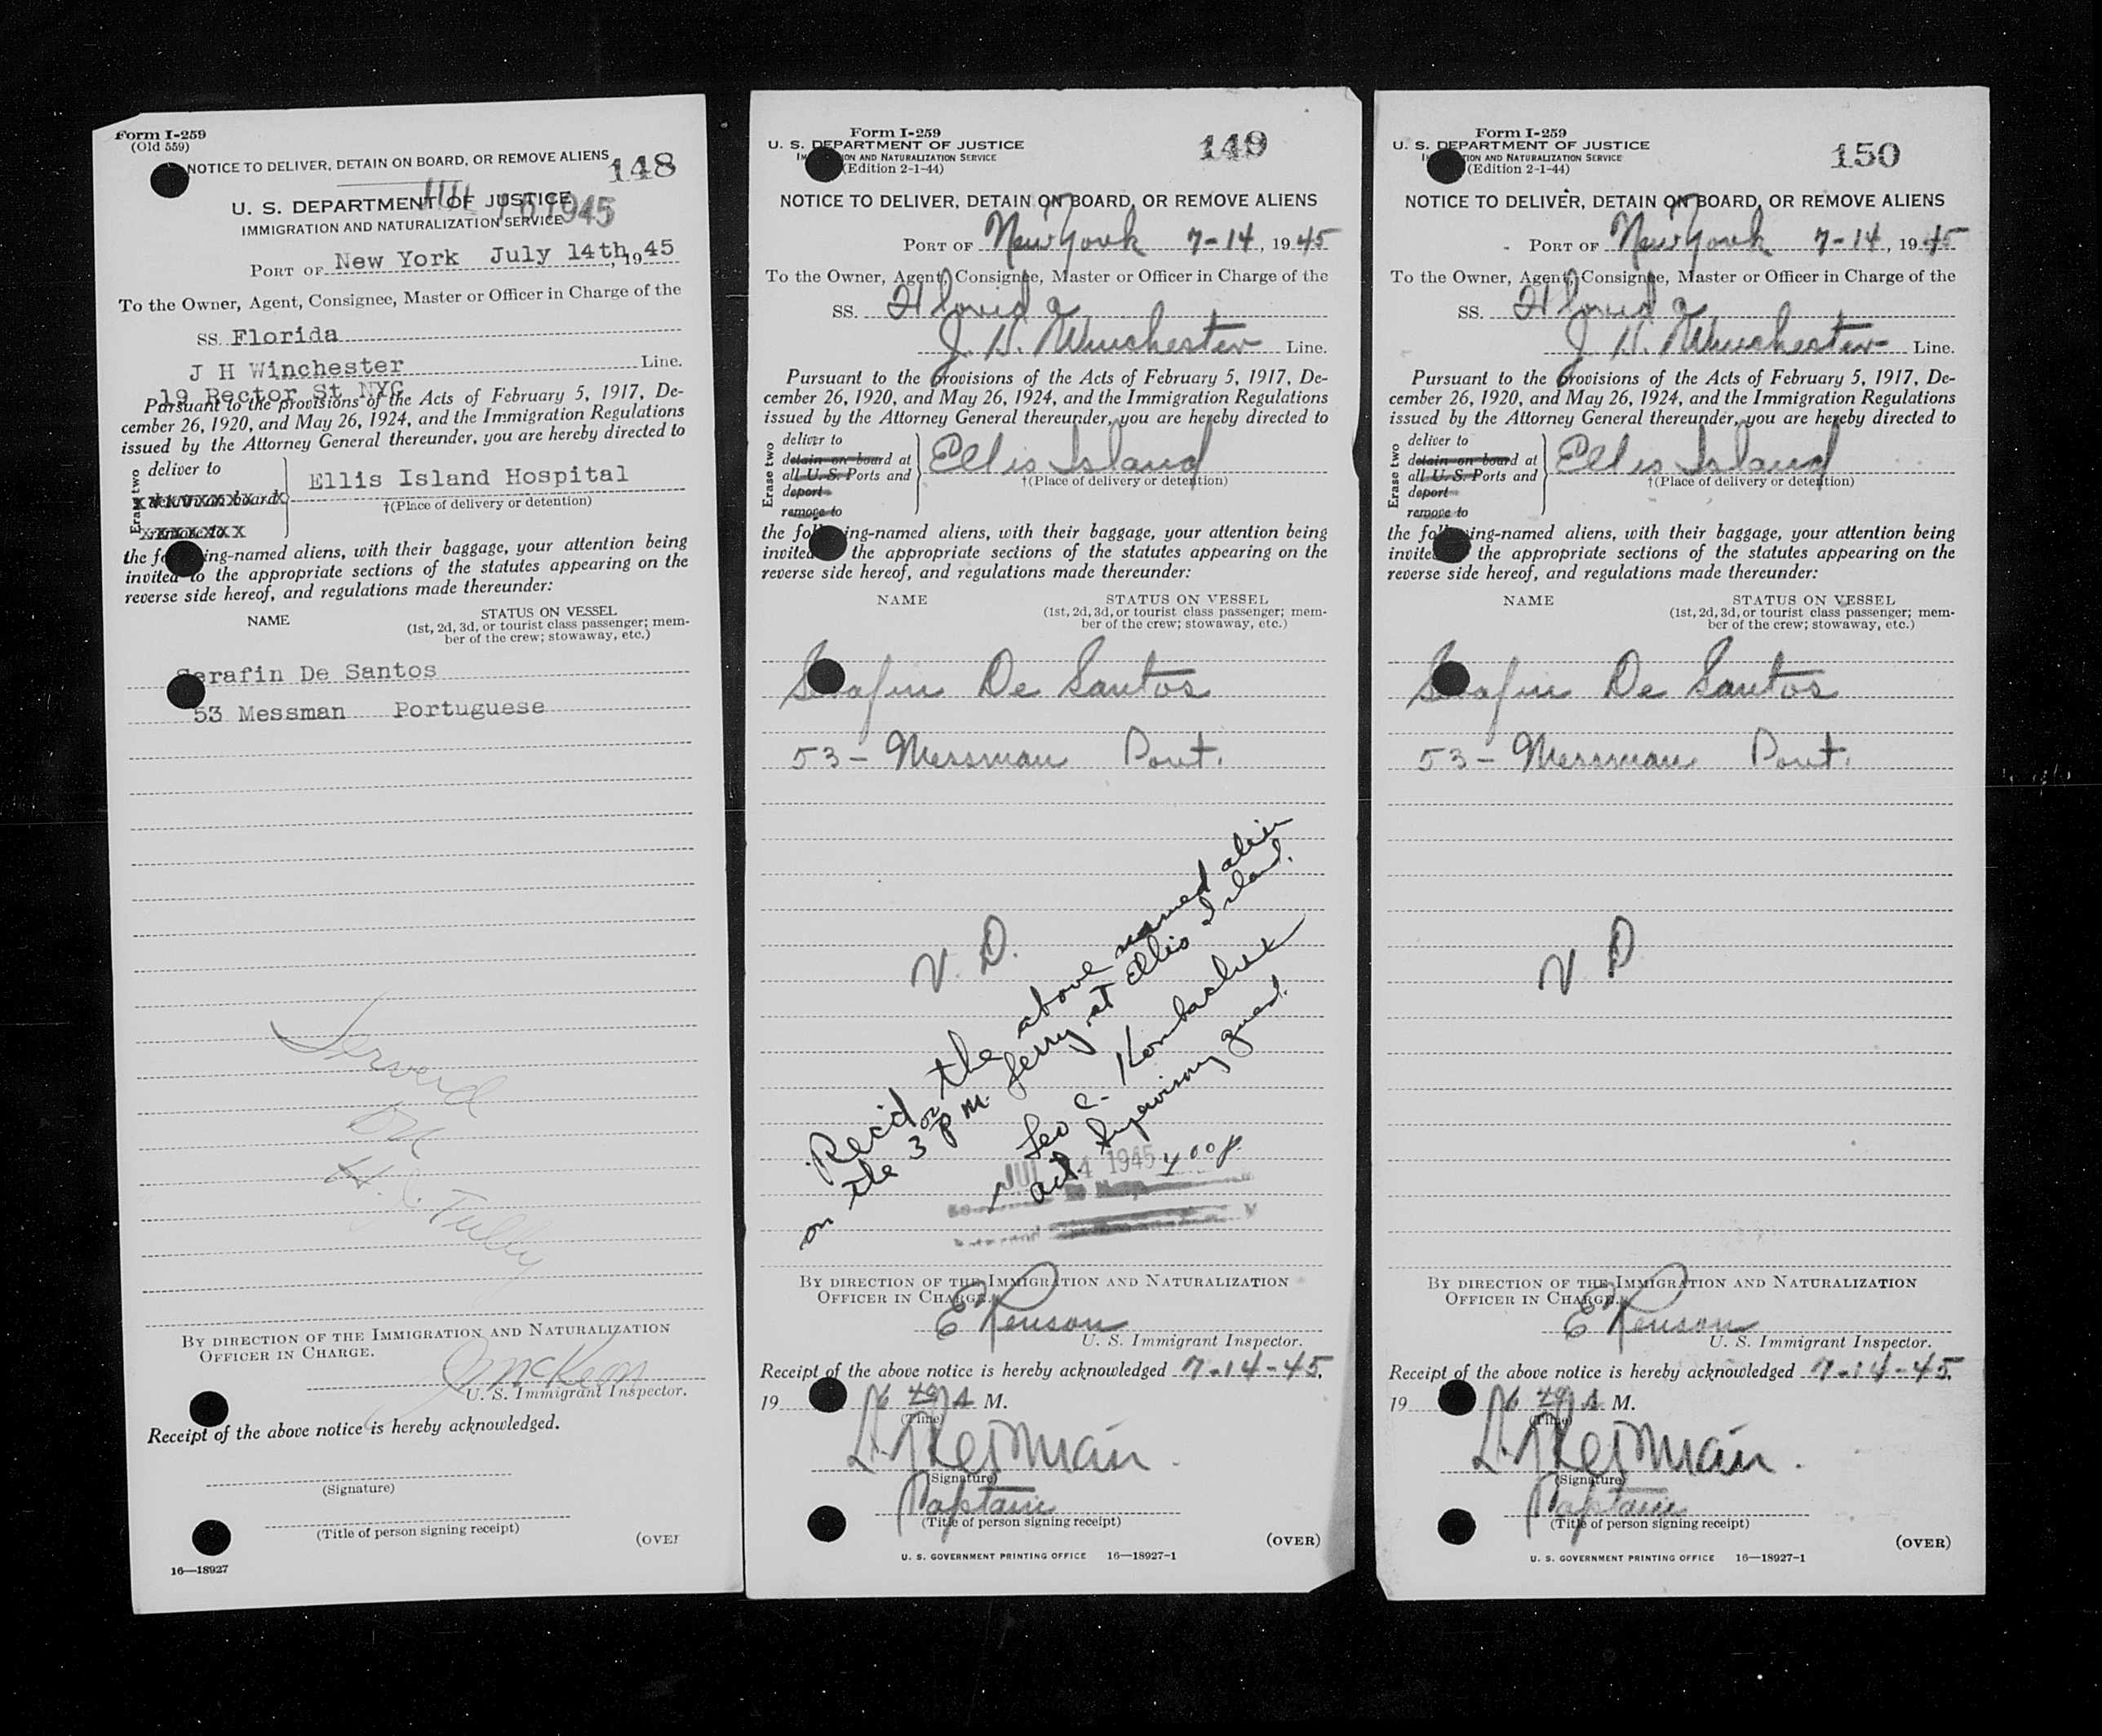 Form I-259
(Old 559)
NOTICE TO DELIVER, DETAIN ON BOARD, OR REMOVE ALIENS
148
JUL 1945
U. S. DEPARTMENT OF JUSTICE
IMMIGRATION AND NATURALIZATION SERVICE
PORT OF New York July 14th, 1945
To the Owner, Agent, Consignee, Master or Officer in Charge of the
SS. Florida
J H Winchester Line.
19 Rector St NYC
Pursuant to the provisions of the Acts of February 5, 1917, De-
cember 26, 1920, and May 26, 1924, and the Immigration Regulations
issued by the Attorney General thereunder, you are hereby directed to
Erase two
deliver to
detain on board
remove to
Ellis Island Hospital
†(Place of delivery or detention)
the following-named aliens, with their baggage, your attention being
invited to the appropriate sections of the statutes appearing on the
reverse side hereof, and regulations made thereunder:
NAME
STATUS ON VESSEL
(1st, 2d, 3d, or tourist class passenger; mem-
ber of the crew; stowaway, etc.)
Serafin De Santos
53 Messman Portuguese
Served
on
Tully
BY DIRECTION OF THE IMMIGRATION AND NATURALIZATION
OFFICER IN CHARGE.
McKeon
U. S. Immigrant Inspector.
Receipt of the above notice is hereby acknowledged.
(Signature)
(Title of person signing receipt)
(OVER
16—18927
Form I-259
U. S. DEPARTMENT OF JUSTICE
IMMIGRATION AND NATURALIZATION SERVICE
(Edition 2-1-44)
149
NOTICE TO DELIVER, DETAIN ON BOARD, OR REMOVE ALIENS
PORT OF New York 7-14, 1945
To the Owner, Agent, Consignee, Master or Officer in Charge of the
SS. Florida
J. H. Winchester Line.
Pursuant to the provisions of the Acts of February 5, 1917, De-
cember 26, 1920, and May 26, 1924, and the Immigration Regulations
issued by the Attorney General thereunder, you are hereby directed to
Erase two
deliver to
detain on board at
all U. S. Ports and
deport
remove to
Ellis Island
†(Place of delivery or detention)
the following-named aliens, with their baggage, your attention being
invited to the appropriate sections of the statutes appearing on the
reverse side hereof, and regulations made thereunder:
NAME
STATUS ON VESSEL
(1st, 2d, 3d, or tourist class passenger; mem-
ber of the crew; stowaway, etc.)
Serafin De Santos
53 - Messman Port.
V. D.
Rec'd the above named alien
on the 3 p m. ferry at Ellis Island.
Leo C.
act. Supervisory guard.
JUL 14 1945 4 00 p.
BY DIRECTION OF THE IMMIGRATION AND NATURALIZATION
OFFICER IN CHARGE.
E Renson
U. S. Immigrant Inspector.
Receipt of the above notice is hereby acknowledged 7-14-45,
19 A M.
(Time)
(Signature)
Captain
(Title of person signing receipt)
(OVER)
U. S. GOVERNMENT PRINTING OFFICE 16—18927-1
Form I-259
U. S. DEPARTMENT OF JUSTICE
IMMIGRATION AND NATURALIZATION SERVICE
(Edition 2-1-44)
150
NOTICE TO DELIVER, DETAIN ON BOARD, OR REMOVE ALIENS
PORT OF New York 7-14, 1945
To the Owner, Agent, Consignee, Master or Officer in Charge of the
SS. Florida
J. H. Winchester Line.
Pursuant to the provisions of the Acts of February 5, 1917, De-
cember 26, 1920, and May 26, 1924, and the Immigration Regulations
issued by the Attorney General thereunder, you are hereby directed to
Erase two
deliver to
detain on board at
all U. S. Ports and
deport
remove to
Ellis Island
†(Place of delivery or detention)
the following-named aliens, with their baggage, your attention being
invited to the appropriate sections of the statutes appearing on the
reverse side hereof, and regulations made thereunder:
NAME
STATUS ON VESSEL
(1st, 2d, 3d, or tourist class passenger; mem-
ber of the crew; stowaway, etc.)
Serafin De Santos
53 - Messman Port.
V D
BY DIRECTION OF THE IMMIGRATION AND NATURALIZATION
OFFICER IN CHARGE.
E Renson
U. S. Immigrant Inspector.
Receipt of the above notice is hereby acknowledged 7-14-45,
19 A M.
(Time)
(Signature)
Captain
(Title of person signing receipt)
(OVER)
U. S. GOVERNMENT PRINTING OFFICE 16—18927-1